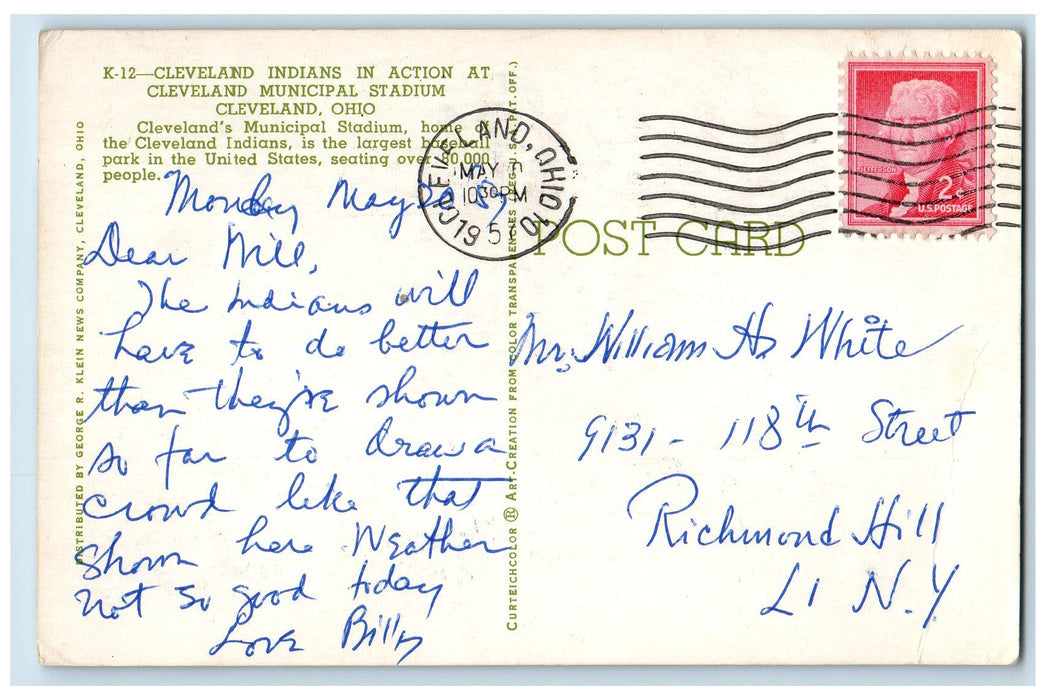 K-12—CLEVELAND INDIANS IN ACTION AT
CLEVELAND MUNICIPAL STADIUM
CLEVELAND, OHIO
Cleveland's Municipal Stadium, home of
the Cleveland Indians, is the largest baseball
park in the United States, seating over 80,000
people.
Monday May
Dear Will,
The Indians will
have to do better
than they've shown
so far to draw a
crowd like that
shown here Weather
not so good today
Love Billy
DISTRIBUTED BY GEORGE R. KLEIN NEWS COMPANY, CLEVELAND, OHIO
CURTEICHCOLOR ® ART-CREATION FROM COLOR TRANSPARENCIES (REG. U. S. PAT. OFF.)
CLEVELAND, OHIO
MAY
10 30 PM
195
JEFFERSON
2¢
U.S. POSTAGE
POST CARD
Mr. William H. White
9131 - 118th Street
Richmond Hill
LI N.Y